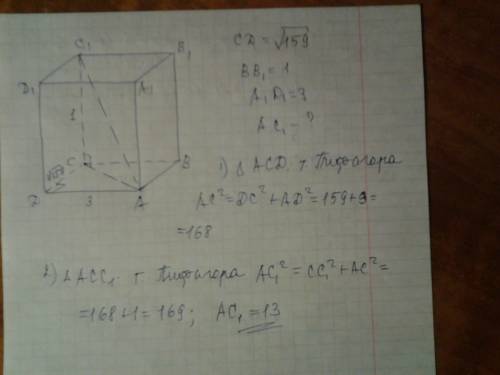 C₁ B₁
D₁ A₁
1
C B
√159
D 3 A
CD = √159
BB₁ = 1
A₁D₁ = 3
AC₁ - ?
1) Δ ACD. т. Пифагора
AC² = DC² + AD² = 159 + 9 =
= 168
2) Δ ACC₁. т. Пифагора AC₁² = CC₁² + AC² =
= 168 + 1 = 169; AC₁ = 13